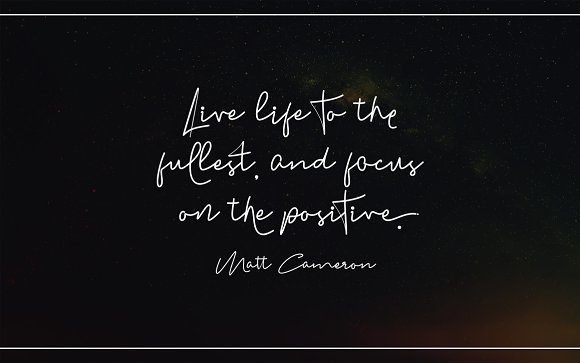 Live life to the
fullest, and focus
on the positive.
Matt Cameron